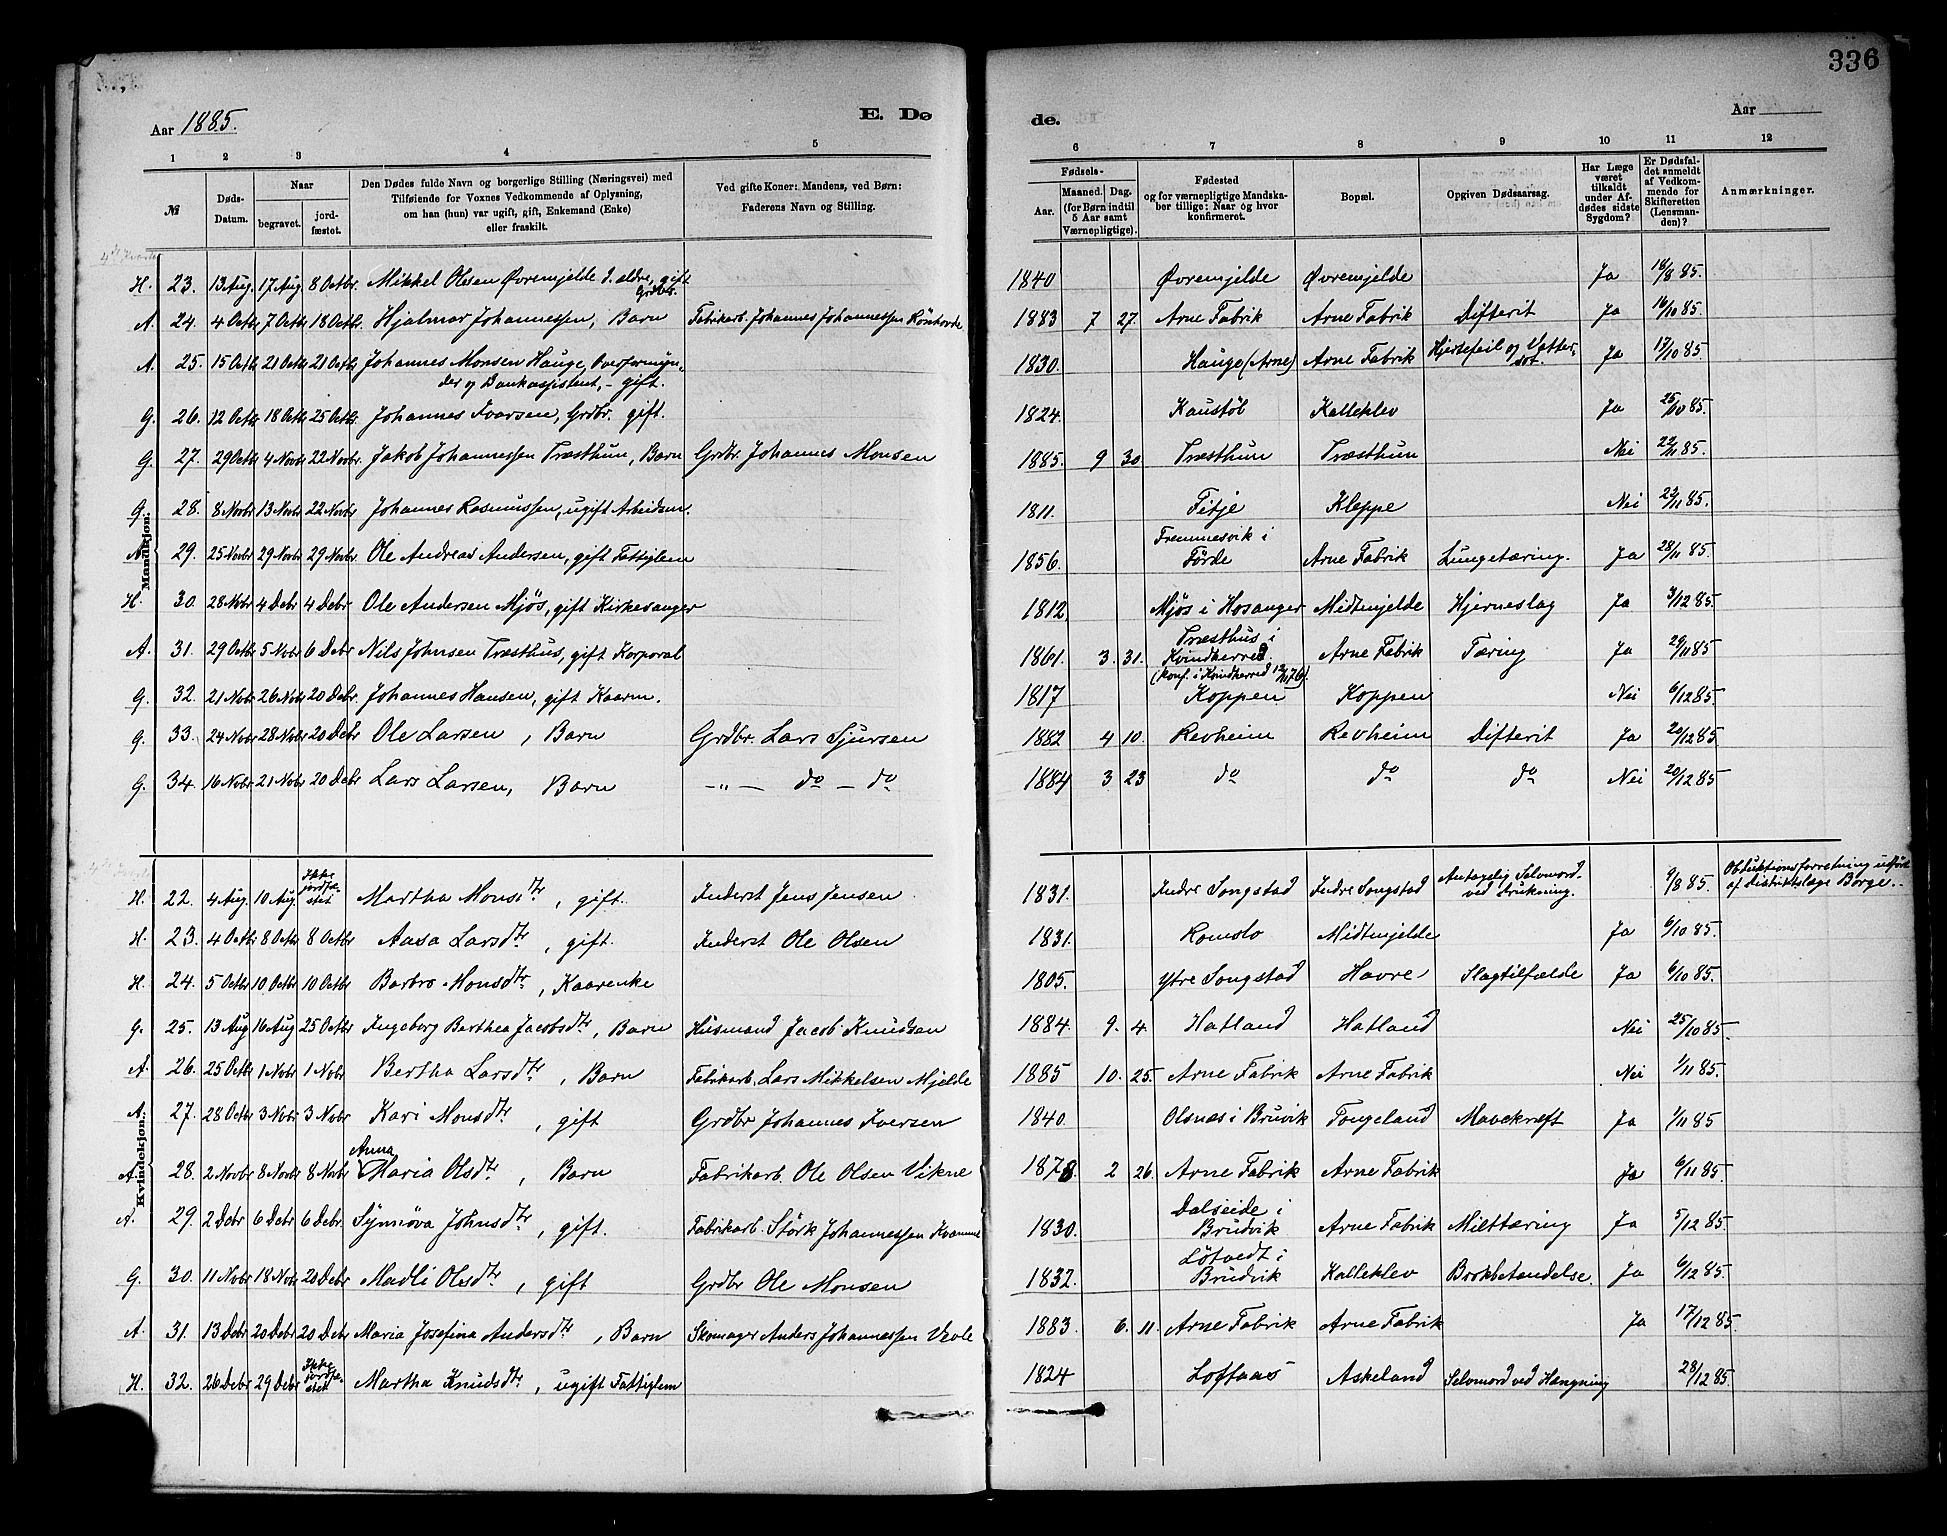 336
Aar 1885.
E. Dø
de.
Aar
1 2 3 4 5 6 7 8 9 10 11 12
№
Døds-Datum.
Naar
begravet.
jordfæstet.
Den Dødes fulde Navn og borgerlige Stilling (Næringsvei) med
Tilføiende for Voxnes Vedkommende af Oplysning,
om han (hun) var ugift, gift, Enkemand (Enke)
eller fraskilt.
Ved gifte Koner: Mandens, ved Børn:
Faderens Navn og Stilling.
Fødsels-
Aar.
Maaned. Dag.
(for Børn indtil
5 Aar samt
Værnepligtige).
Fødested
og for værnepligtige Mandska-
ber tillige: Naar og hvor
konfirmeret.
Bopæl.
Opgiven Dødsaarsag.
Har Læge
været
tilkaldt
under Af-
dødes sidste
Sygdom?
Er Dødsfal-
det anmeldt
af Vedkom-
mende for
Skifteretten
(Lensman-
den)?
Anmærkninger.
Mandkjøn.
H. 23. 13 Aug. 17 Aug 8 Octbr. Mikkel Olsen Øvremjelde d. eldre, gift Grdbr. 1840 Øvremjelde Øvremjelde Ja 18/8 85.
A. 24. 4 Octb 7 Octb 18 Octb. Hjalmar Johannessen, Barn Fabrikarb. Johannes Johannessen Rönhovde 1883 7 27. Arne Fabrik Arne Fabrik Difterit Ja 16/10 85.
A. 25. 15 Octb 21 Octb 21 Octb Johannes Monsen Hauge, Overformyn-
der og Bankassistent, - gift. 1830. Hauge (Arne) Arne Fabrik Hjertefeil og Vatter-
sot. Ja 17/10 85
G. 26. 12 Octb 18 Octb 25 Octbr Johannes Ivarsen, Grdbr. gift. 1824. Kaustöl Kalleklev Ja 25/10 85.
G. 27. 29 Octb 4 Novbr 22 Novbr. Jakob Johannessen Træsthun, Barn Grdbr. Johannes Monsen 1885. 9 30 Træsthun Træsthun Nei 22/11 85.
G. 28. 8 Novbr 13 Novbr 22 Novbr Johannes Rasmussen, ugift Arbeidsm. 1811. Titje Kleppe Nei 22/11 85.
A. 29. 25 Novbr 29 Novbr 29 Novbr. Ole Andreas Andersen, gift Fattiglem 1856. Fremmesvik i
Förde Arne Fabrik Lungetæring. Ja 28/11 85.
H. 30. 28 Novbr 4 Debr 4 Debr Ole Andersen Mjös, gift Kirkesanger 1812. Mjös i Hosanger Midtmjelde Hjerneslag Ja 3/12 85.
A. 31. 29 Octb 5 Novbr 6 Debr Nils Johnsen Træsthus, gift Korporal 1861. 3. 31. Træsthus i
Kvindherred.
(Konf. i Kvindherred 76). Arne Fabrik Tæring Ja 29/11 85
G. 32. 21 Novbr 26 Novbr 20 Debr. Johannes Hansen, gift Kaarm. 1817 Koppen Koppen Nei 6/12 85.
G. 33. 24 Novbr 28 Novbr 20 Debr Ole Larsen, Barn Grdbr. Lars Sjursen 1882 4 10. Revheim Revheim Difterit Ja 20/12 85.
G. 34. 16 Novbr 21 Novbr 20 Debr Lars Larsen, Barn -"- do - do 1884 3 23 do do do Nei 20/12 85
Kvindekjøn.
H. 22. 4 Aug. 10 Aug Ikke
jordfæ-
stet Martha Monsdtr, gift. Inderst Jens Jensen 1831. Indre Songstad Indre Songstad Antagelig Selvmord
ved drukning. 9/8 85. Obduktionsforretning udført
af Distriktslæge Borge.
H. 23. 4 Octb 8 Octb 8 Octb Aasa Larsdtr, gift. Inderst Ole Olsen 1831. Romslo Midtmjelde Ja 6/10 85.
H. 24. 5 Octb 10 Octb 10 Octb Barbro Monsdtr, Kaarenke 1805. Ytre Songstad Havre Slagtilfælde Ja 6/10 85.
G. 25. 13 Aug 16 Aug 25 Octb Ingeborg Berthea Jacobsdtr, Barn Husmand Jacob Knudsen 1884. 9. 4. Hatland Hatland Nei 25/10 85.
A. 26. 25 Octb 1 Novbr 1 Novbr Bertha Larsdtr, Barn Fabrikarb. Lars Mikkelsen Mjelde 1885 10. 25. Arne Fabrik Arne Fabrik Nei 1/11 85.
A. 27. 28 Octbr 3 Novbr 3 Novbr Kari Monsdtr, gift Grdbr Johannes Iversen 1840. Olsnæs i Bruvik Tongeland Mavekræft Ja 1/11 85
A. 28. 2 Novbr 8 Novbr 8 Novbr Anna
Maria Olsdtr, Barn Fabrikarb. Ole Olsen Vikne 1878 2 26. Arne Fabrik Arne Fabrik Ja 6/11 85.
A. 29. 2 Debr 6 Debr 6 Debr. Synnöva Johnsdtr, gift. Fabrikarb. Störk Johannessen Kvamme 1830. Dalseide i
Brudvik Arne Fabrik Milttæring Ja 5/12 85.
G. 30. 11 Novbr 18 Novbr 20 Debr Madli Olsdtr, gift Grdbr Ole Monsen 1832. Lötvedt i
Brudvik Kalleklev Brokbetændelse. Ja 6/12 85.
A. 31. 13 Debr 20 Debr 20 Debr Maria Josefina Andersdtr, Barn Skomager Anders Johannessen Vevle 1883. 6. 11. Arne Fabrik Arne Fabrik Ja 17/12 85.
H. 32. 26 Debr 29 Debr Ikke
jordfæ-
stet Martha Knudsdtr, ugift Fattiglem 1824 Loftaas Askeland Selvmord ved Hængning 28/12 85.